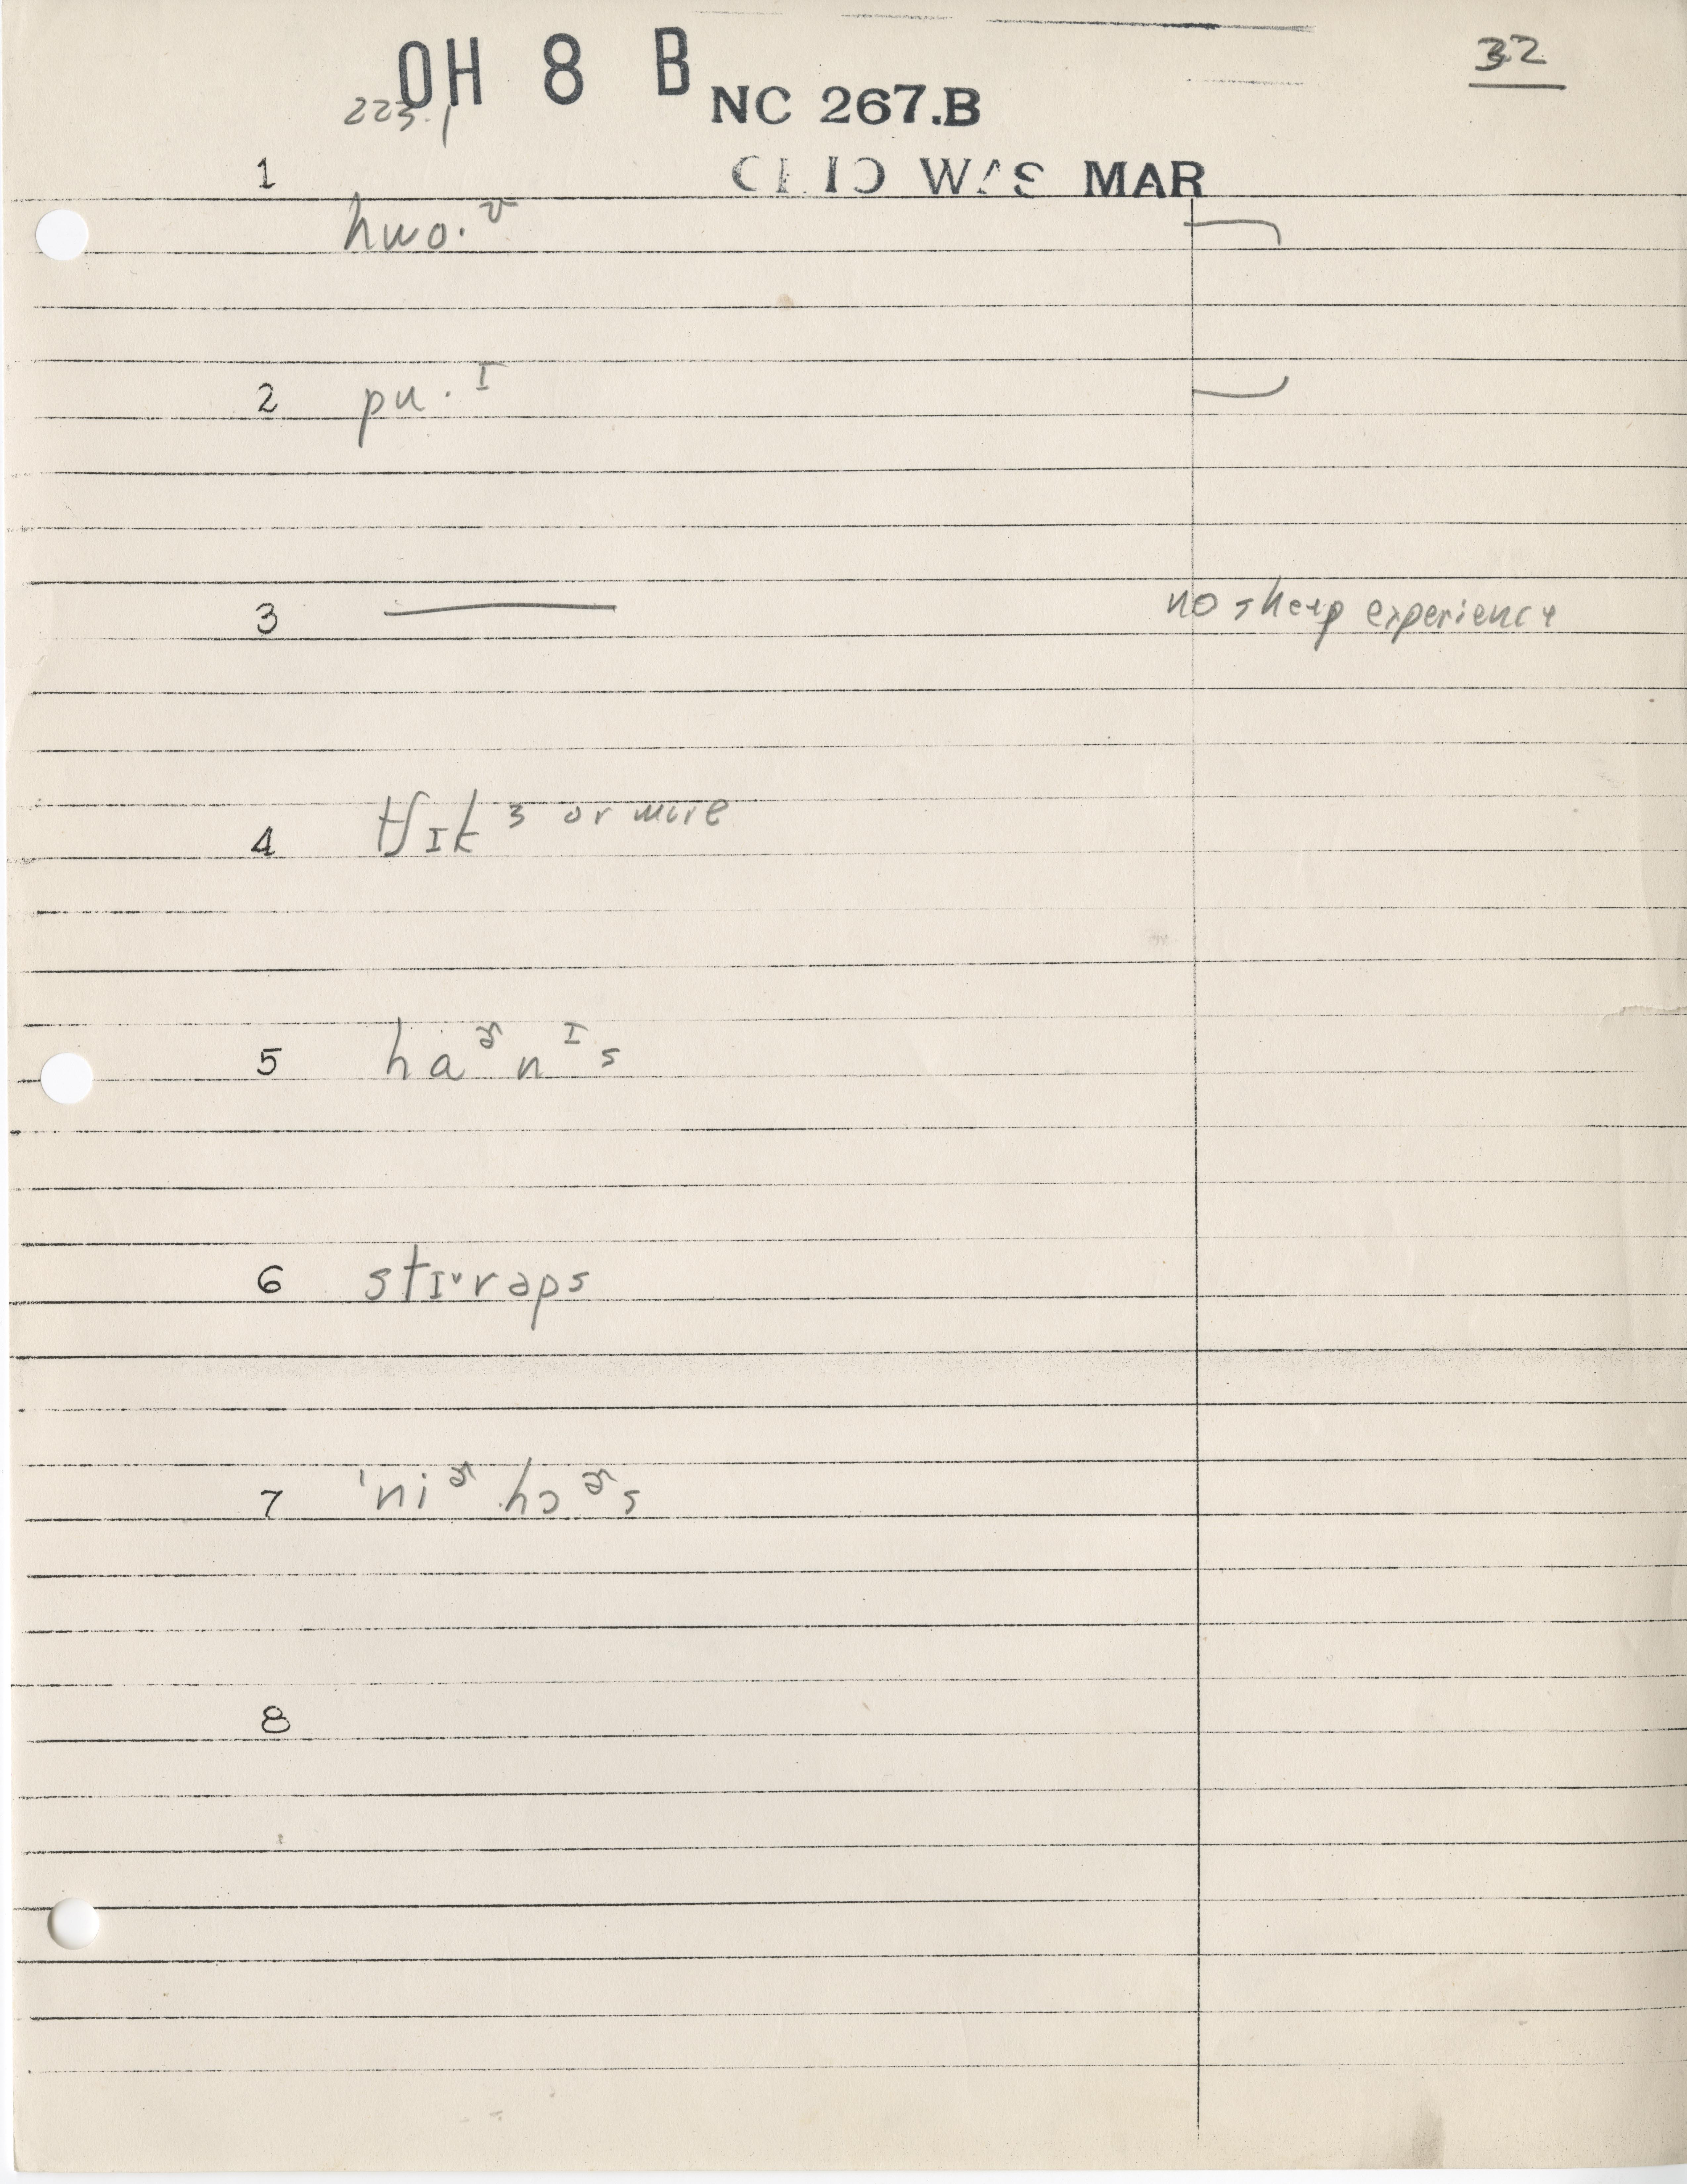 OH 8 B
32
223.1
NC 267.B
1
MAR
hwo·ᶷ
2 pu·ᴵ
3 no sheep experience
4 tʃɪk 3 or more
5 haᵊ˞nᴵs
6 stɪ˅rəps
7 ˈniᵊ˞ hɔᵊ˞s
8